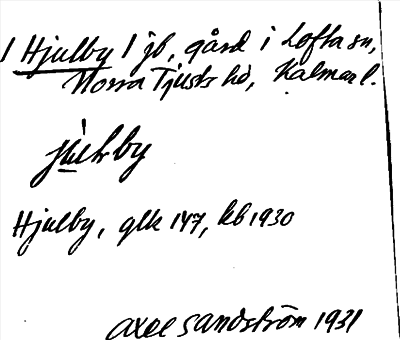 1 Hjulby 1 jb, gård i Lofta sn,
Norra Tjusts hd, Kalmar l.
Hjulby, glk 147, kb 1930
Axel Sandström 1931